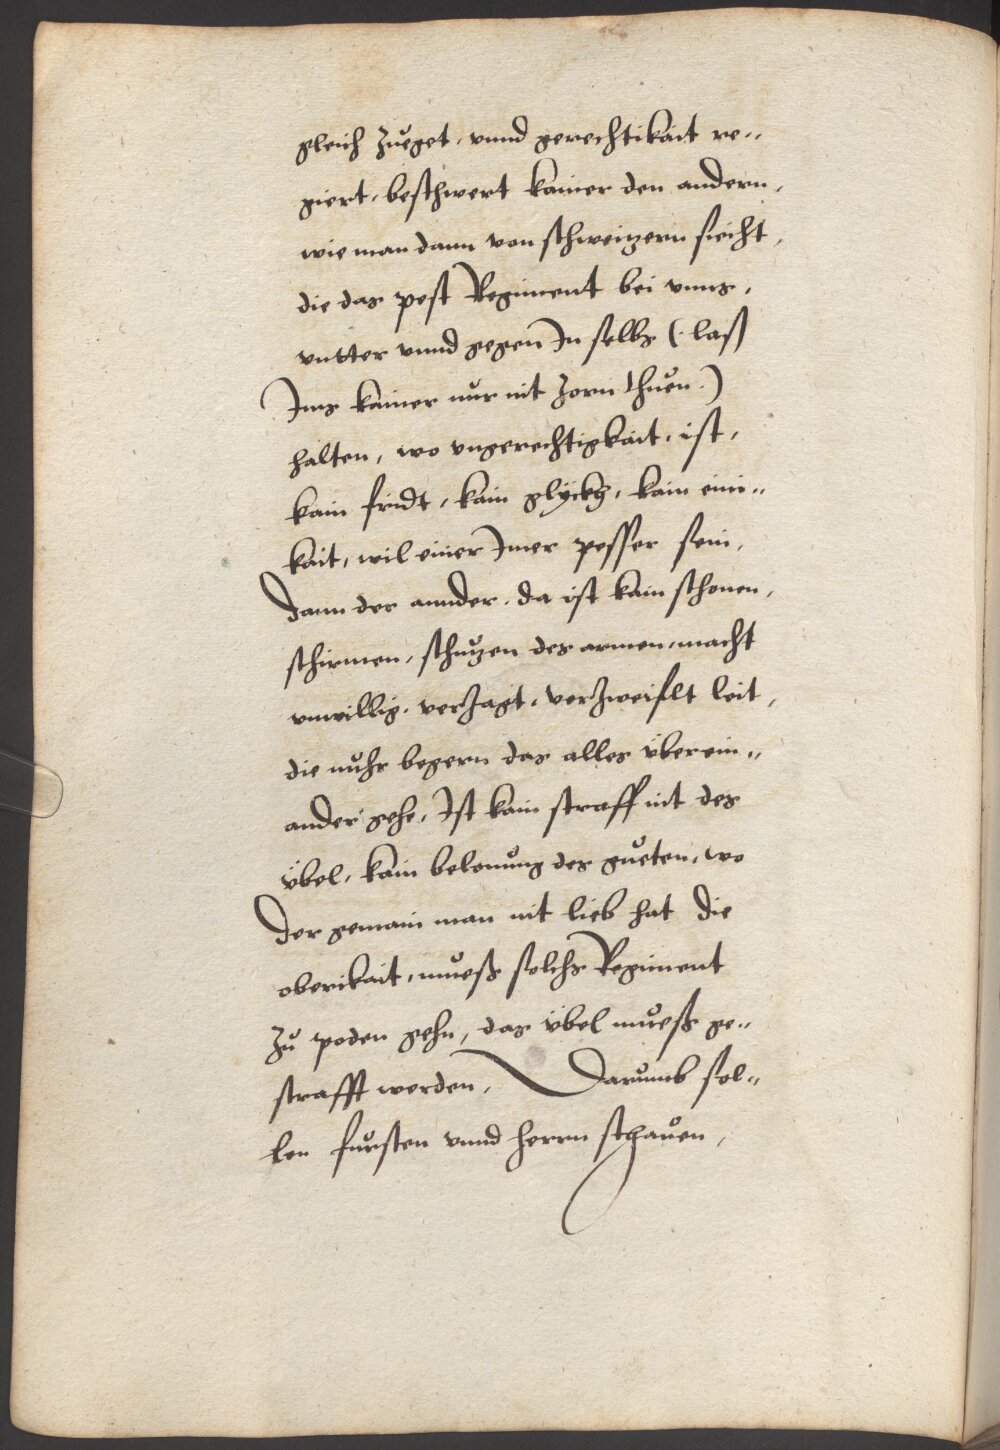 gleich zueget, vnnd gerechtikait re-
giert, beschwert kainer den andern,
wie man dann von schweitzern siecht,
die das pest Regiment bei vnns,
vntter vnnd gegen In selbs (. laß
Ims kainer nur nit zorn thuen .)
halten, wo vngerechtigkait, ist,
kain fridt, kain glyckh, kain eini-
kait, wil einer Imer pesser sein,
dann der annder. da ist kain schonen,
schirmen, schutzen des armen, macht
vnwillig, verzagt, verzweiflt leit,
die nuhr begern das alles überein-
ander gehe, Ist kain straff nit des
übel, kain belonung des gueten, wo
der gemain man nit lieb hat die
oberikait, mueß solchs Regiment
zu poden gehn, das übel mueß ge-
strafft werden, Darumb sol-
len fursten vnnd herrn schauen,